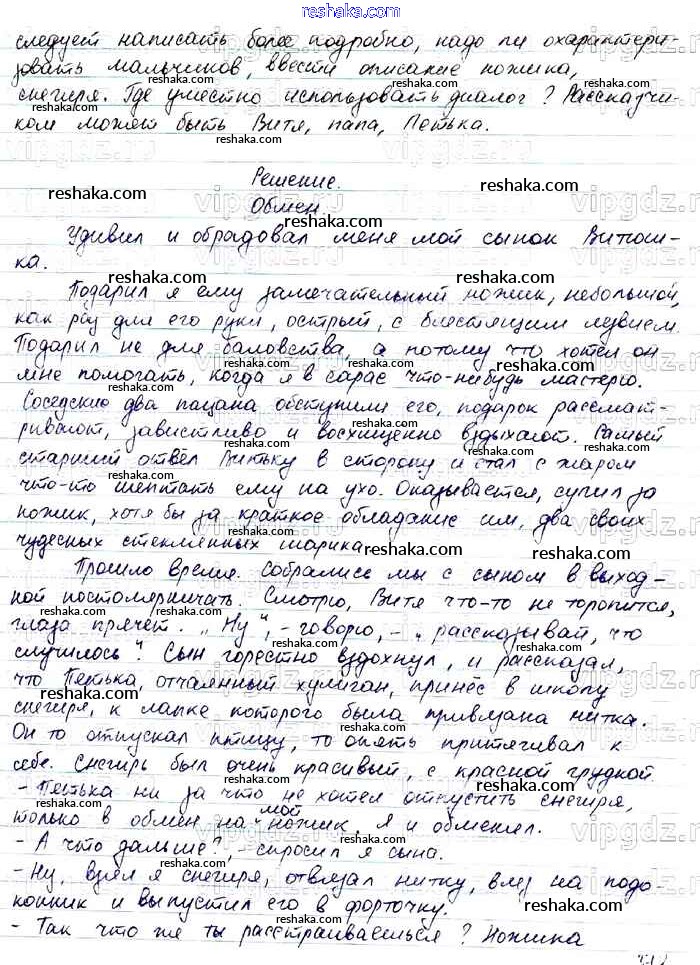 reshaka.com
следует написать более подробно, надо ли охарактери-
зовать мальчиков, ввести описание ножика,
снегиря. Где уместно использовать диалог? Рассказчи-
ком может быть Витя, папа, Петька.
Решение.
Обмен.
Удивил и обрадовал меня мой сынок Витюш-
ка.
Подарил я ему замечательный ножик, небольшой,
как раз для его руки, острый, с блестящим лезвием.
Подарил не для баловства, а потому что хотел он
мне помогать, когда я в сарае что-нибудь мастерю.
Соседские два пацана обступили его, подарок рассмат-
ривают, завистливо и восхищенно вздыхают. Самый
старший отвёл Витьку в сторону и стал с жаром
что-то шептать ему на ухо. Оказывается, сулил за
ножик, хотя бы за краткое обладание им, два своих
чудесных стеклянных шарика.
Прошло время. Собрались мы с сыном в выход-
ной постолярничать. Смотрю, Витя что-то не торопится,
глаза прячет. „Ну", – говорю, – „рассказывай, что
случилось". Сын горестно вздохнул, и рассказал,
что Петька, отчаянный хулиган, принёс в школу
снегиря, к лапке которого была привязана нитка.
Он то отпускал птицу, то опять притягивал к
себе. Снегирь был очень красивый, с красной грудкой
- Петька ни за что не хотел отпустить снегиря,
только в обмен на мой ножик. Я и обменял.
- А что дальше?, – спросил я сына.
- Ну, взял я снегиря, отвязал нитку, влез на подо-
конник и выпустил его в форточку.
- Так что же ты расстраиваешься? Ножика